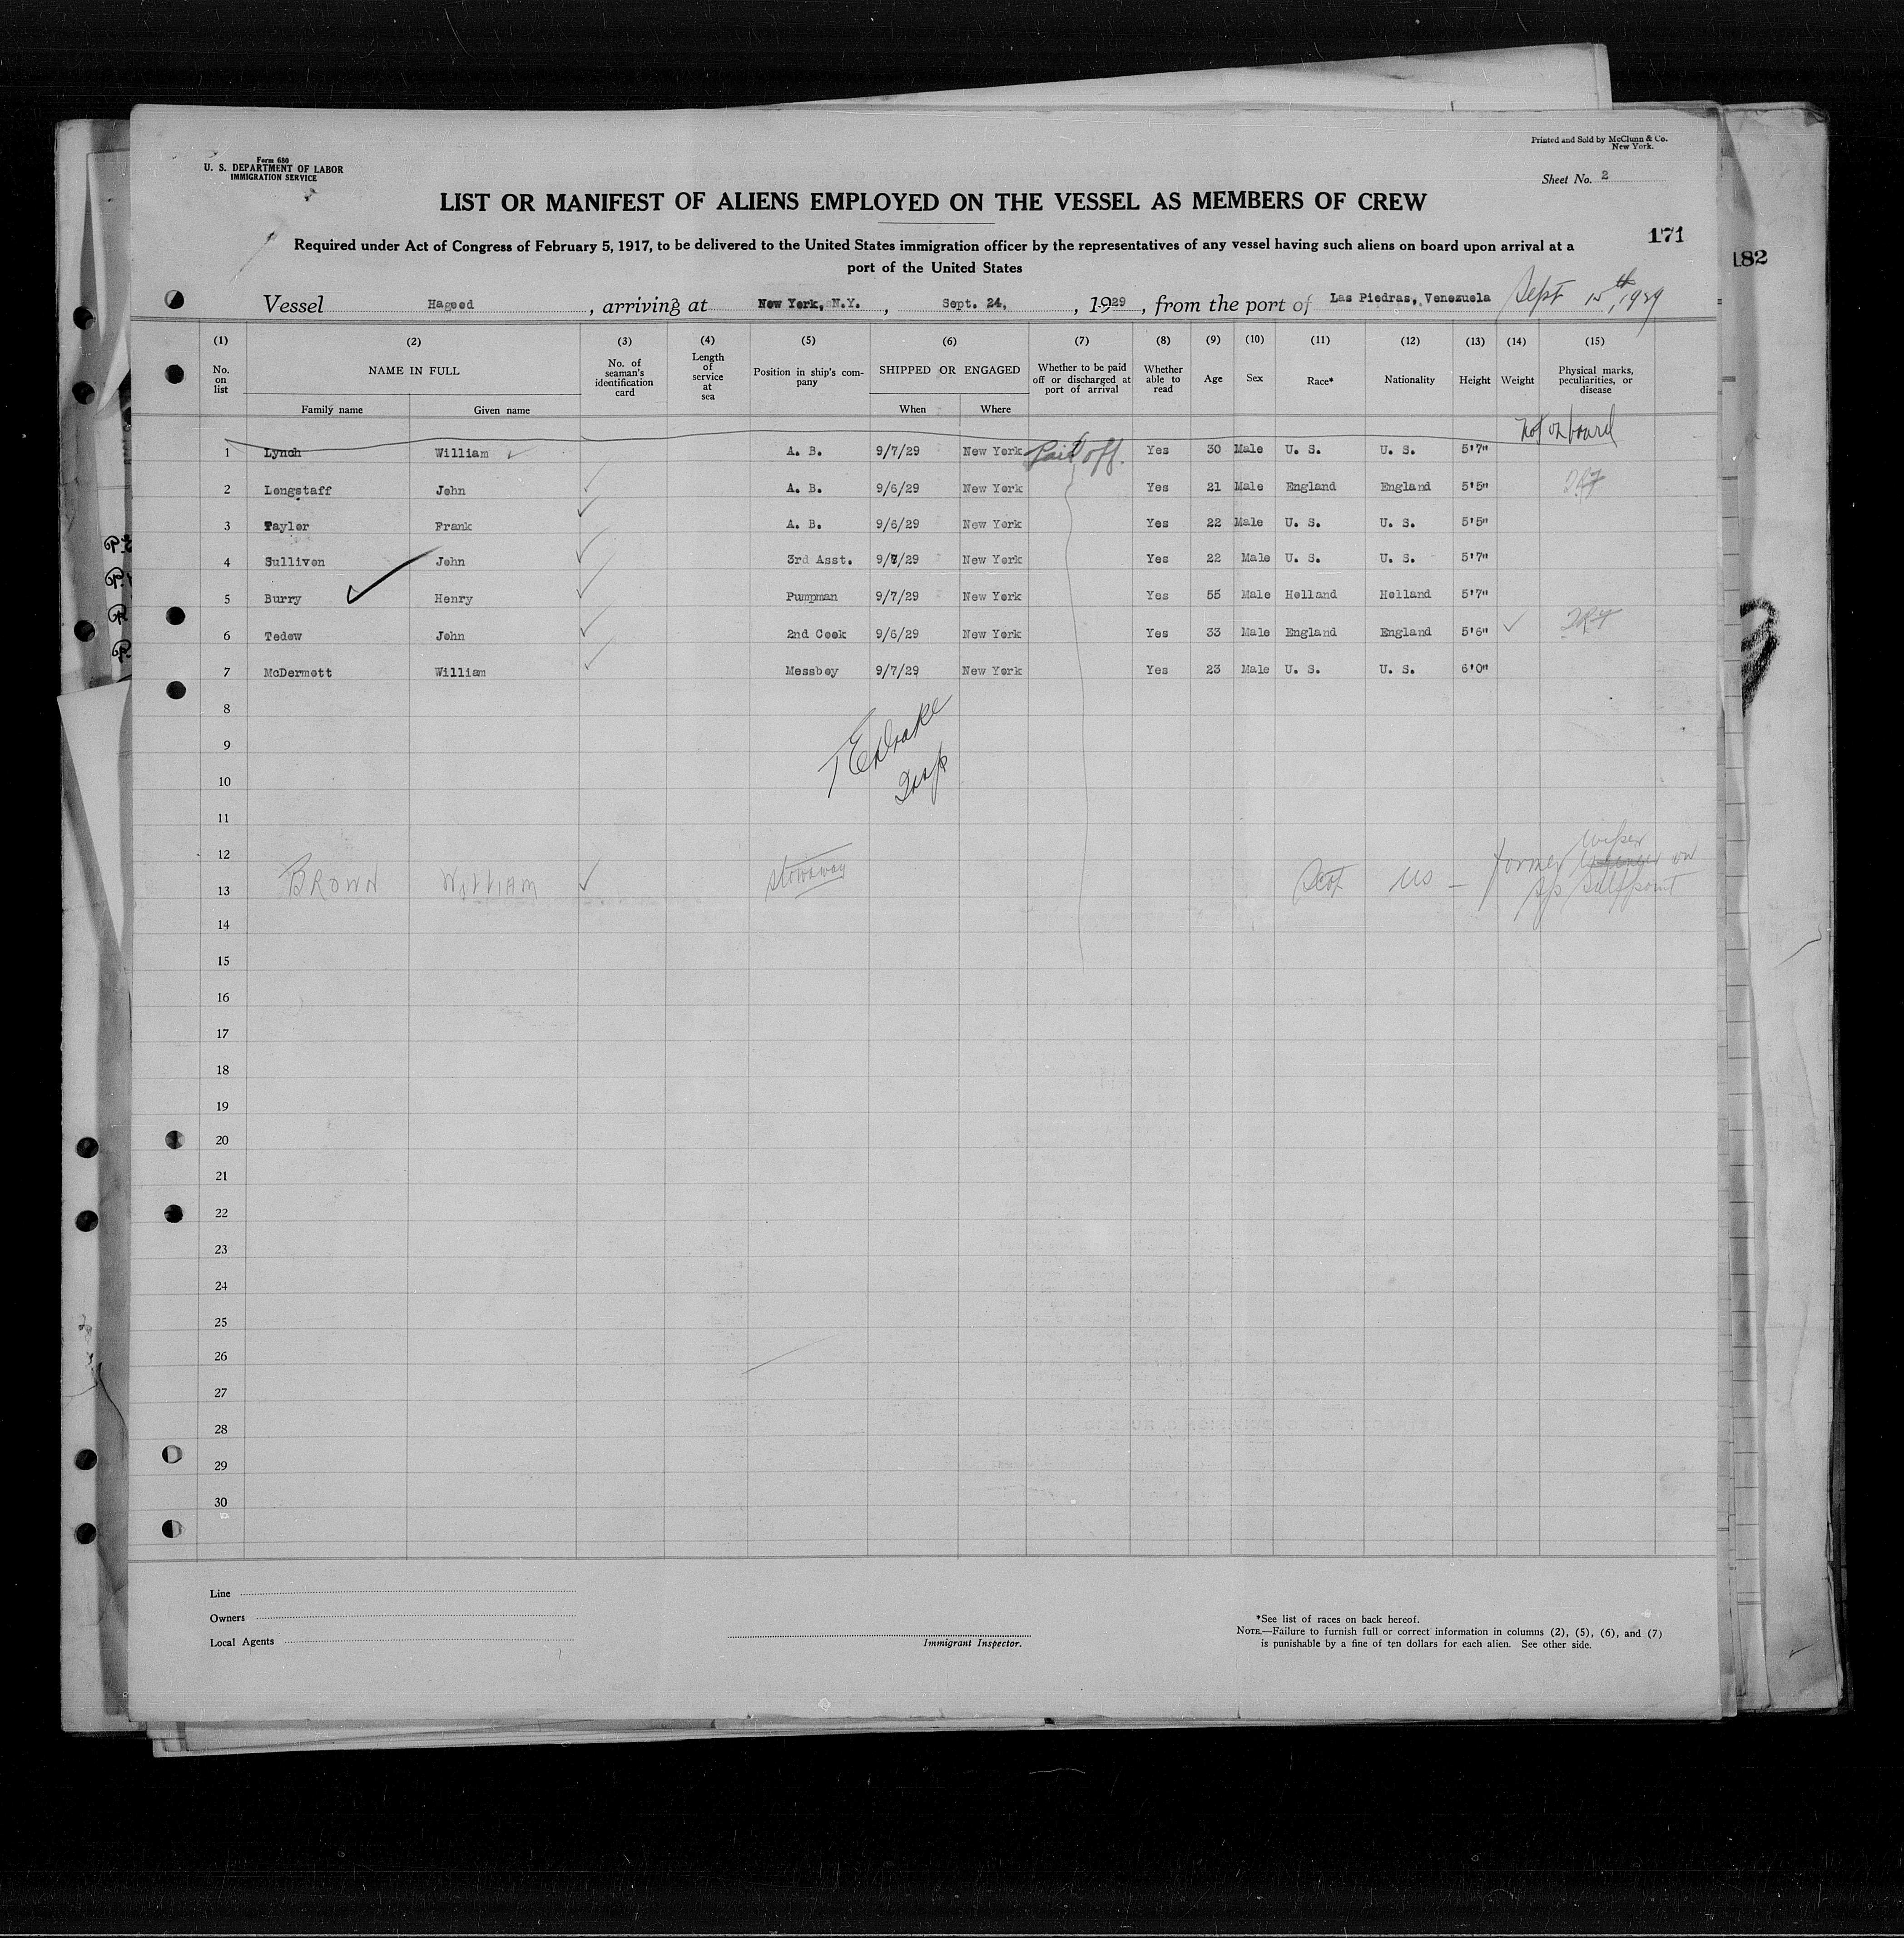 Printed and Sold by McClunn & Co.
New York.
Form 680
U. S. DEPARTMENT OF LABOR
IMMIGRATION SERVICE
Sheet No. 2
LIST OR MANIFEST OF ALIENS EMPLOYED ON THE VESSEL AS MEMBERS OF CREW
171
182
Required under Act of Congress of February 5, 1917, to be delivered to the United States immigration officer by the representatives of any vessel having such aliens on board upon arrival at a
port of the United States
Vessel Hageed, arriving at New York, N.Y., Sept. 24, 1929, from the port of Las Piedras, Venezuela Sept 15th, 1929
(1) (2) (3) (4) (5) (6) (7) (8) (9) (10) (11) (12) (13) (14) (15)
No. on list NAME IN FULL No. of seaman's identification card Length of service at sea Position in ship's company SHIPPED OR ENGAGED Whether to be paid off or discharged at port of arrival Whether able to read Age Sex Race* Nationality Height Weight Physical marks, peculiarities, or disease
Family name Given name When Where
not on board
1 Lynch William A. B. 9/7/29 New York Paid off. Yes 30 Male U. S. U. S. 5'7"
2 Longstaff John A. B. 9/6/29 New York Yes 21 Male England England 5'5"
3 Tayler Frank A. B. 9/6/29 New York Yes 22 Male U. S. U. S. 5'5"
4 Sulliven John 3rd Asst. 9/7/29 New York Yes 22 Male U. S. U. S. 5'7"
5 Burry Henry Pumpman 9/7/29 New York Yes 55 Male Holland Holland 5'7"
6 Tedow John 2nd Cook 9/6/29 New York Yes 33 Male England England 5'6"
7 McDermott William Messboy 9/7/29 New York Yes 23 Male U. S. U. S. 6'0"
8
T E Drake
9
Insp
10
11
12
wiper
13 BROWN WILLIAM stowaway Scot US — former on
S/S Gulfpoint
14
15
16
17
18
19
20
21
22
23
24
25
26
27
28
29
30
Line
Owners
Local Agents
Immigrant Inspector.
*See list of races on back hereof.
NOTE.—Failure to furnish full or correct information in columns (2), (5), (6), and (7)
is punishable by a fine of ten dollars for each alien. See other side.